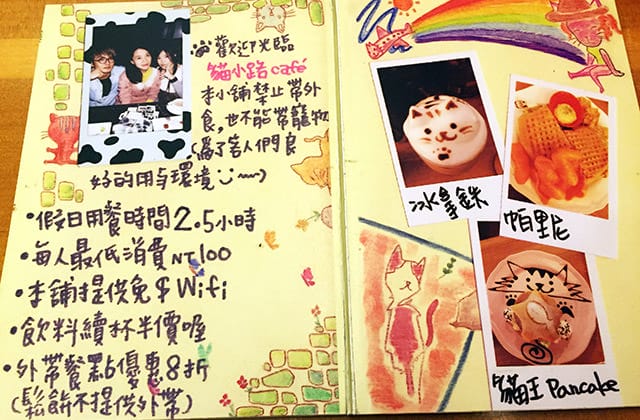 歡迎光臨
貓小路café
本小舖禁止帶外
食,也不能帶寵物
(為了客人們良
好的用餐環境
•假日用餐時間2.5小時
•每人最低消費NT100
•本舖提供免$Wifi
•飲料續杯半價喔
•外帶餐點優惠8折
(鬆餅不提供外帶)
冰拿鉄
帕里尼
貓王Pancake